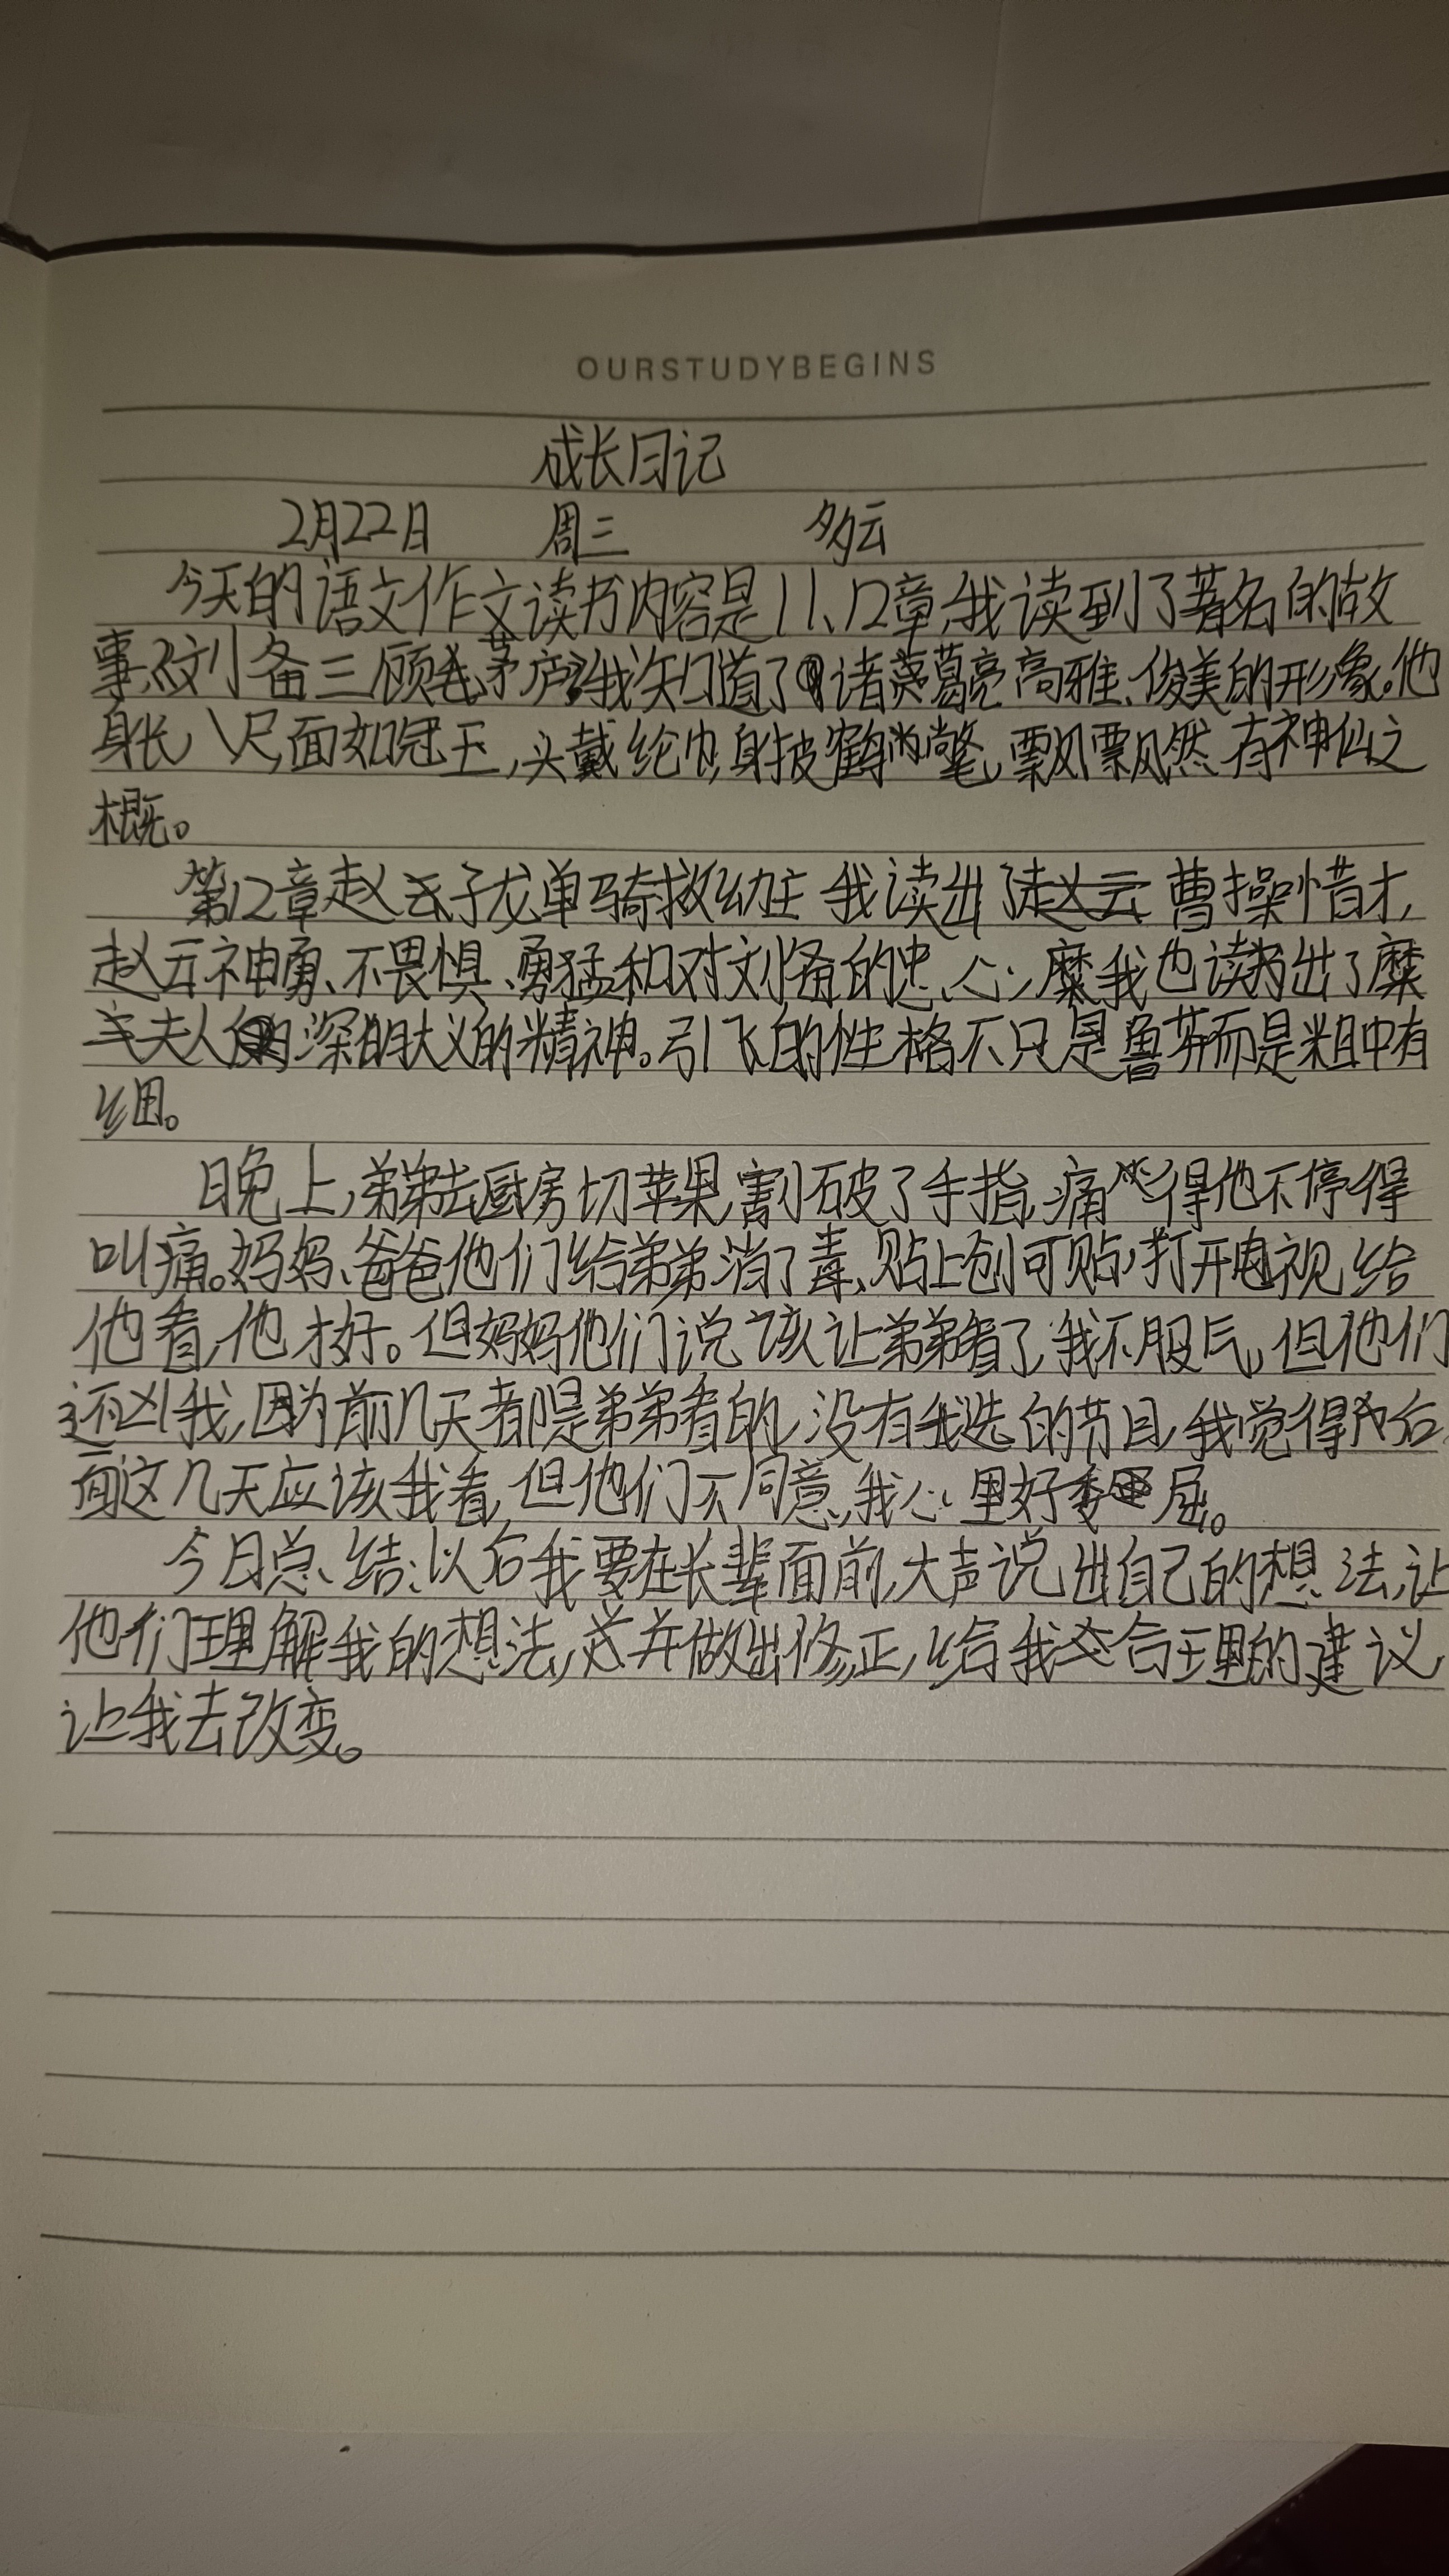 OURSTUDYBEGINS
成长日记
2月22日 周三 多云
今天的语文作文读书内容是11、12章,我读到了著名的故
事,刘备三顾茅庐,我知道了诸葛亮高雅、俊美的形象。他
身长八尺,面如冠玉,头戴纶巾,身披鹤氅,飘飘然有神仙之
概。
第12章赵子龙单骑救幼主 我读出了曹操惜才,
赵云神勇、不畏惧、勇猛和对刘备的忠心;我也读出了糜
夫人深明大义的精神。引飞的性格不只是鲁莽而是粗中有
细。
晚上,弟弟去厨房切苹果,割破了手指,痛得他不停得
叫痛。妈妈、爸爸他们给弟弟消了毒、贴上创可贴,打开电视给
他看,他才好。但妈妈他们说该让弟弟看了,我不服气,但他们
还凶我,因为前几天都是弟弟看的,没有我选的节目,我觉得后
面这几天应该我看,但他们不同意,我心里好委屈。
今日总结:以后我要在长辈面前,大声说出自己的想法,让
他们理解我的想法,并做出修正,给我合理的建议,
让我去改变。